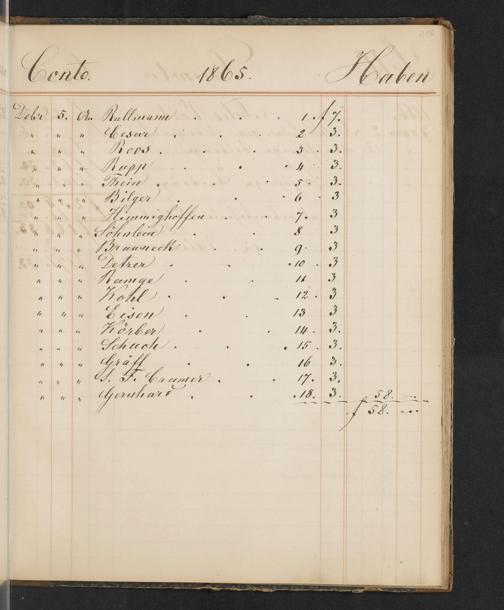 116
Conto. 1865. Haben
Debr 5. Cr. Rullmann . . . 1 . f 7.
" " " Cesar . . . 2 . 3.
" " " Roos . . . 3 . 3.
" " " Rupp . . . 4 . 3.
" " " Thein . . . 5 . 3.
" " " Bilger . . . 6 . 3.
" " " Himmighoffen . . 7 . 3
" " " Söhnlein . . . 8 . 3
" " " Braunech . . . 9 . 3
" " " Detzer . . . 10 . 3
" " " Ramge . . . 11 3
" " " Kohl . . . 12 . 3
" " " Eisen . . . 13 3
" " " Körber . . . 14 . 3.
" " " Schuch . . . 15 . 3.
" " " Gräff . . . 16 3.
" " " J. F. Cramer . . 17 . 3.
" " " Gernhard . . . 18. 3. f 58. —
f 58. —